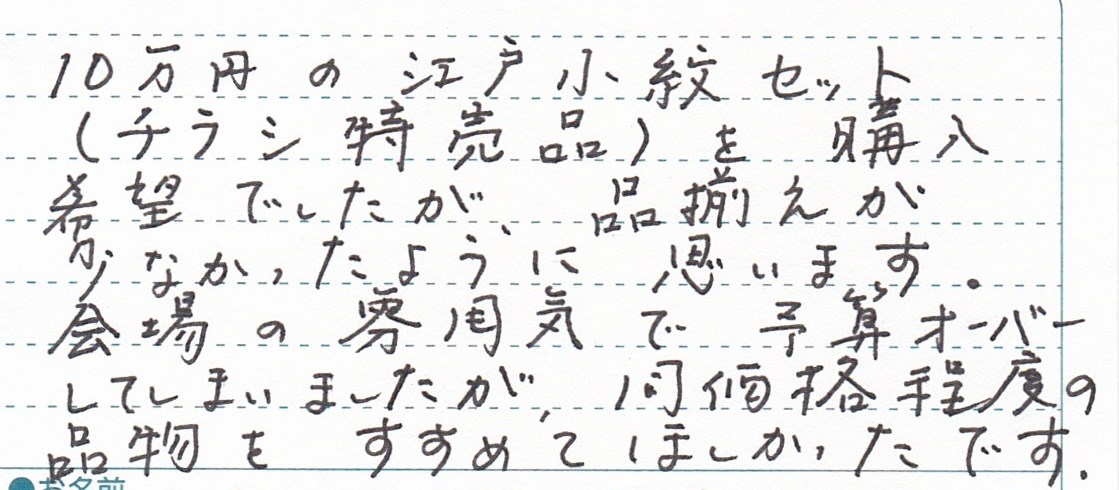 10万円の江戸小紋セット
(チラシ特売品)を購入
希望でしたが、品揃えが
少なかったように思います。
会場の雰囲気で予算オーバー
してしまいましたが、同価格程度の
品物をすすめてほしかったです。
●お名前